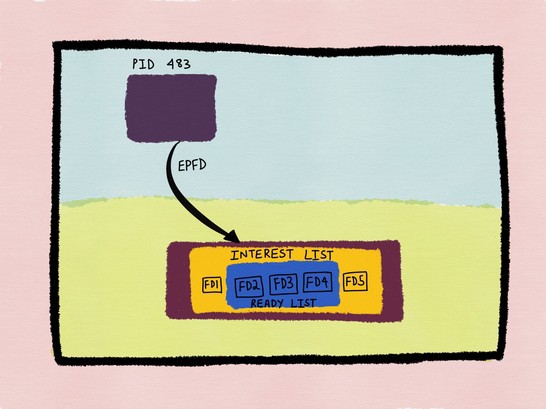 PID 483
EPFD
INTEREST LIST
FD1 FD2 FD3 FD4 FD5
READY LIST